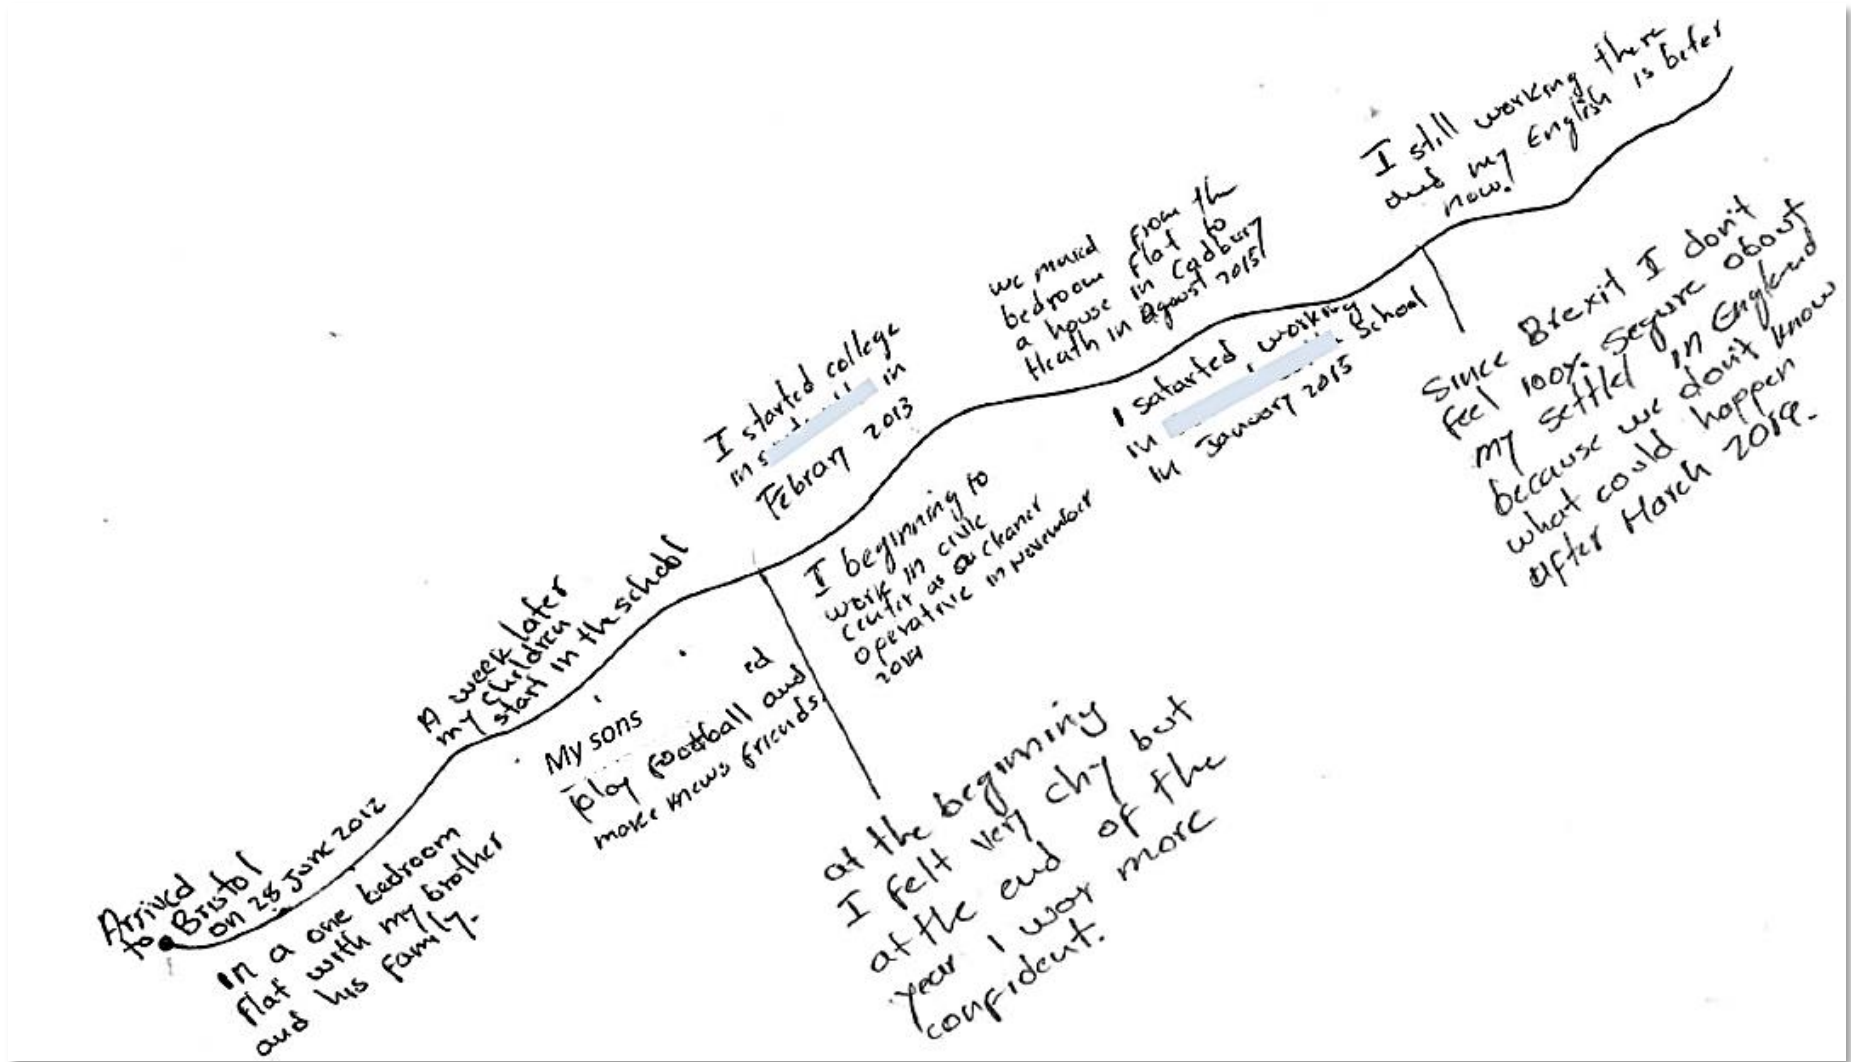 Arrived
to Bristol
on 28 June 2012
In a one bedroom
flat with my brother
and his family.
A week later
my children
start in the school
My sons
ed
play football and
make knews friends.
I started college
in s
in
Febrary 2013
at the beginning
I felt very chy but
at the end of the
year I wor more
confident.
I beginning to
work in civic
center as a cleaner
operative in november
2014
we muved from the
bedroom flat to
a house in Cadbury
Heath in agoust 2015
I satarted working
in School
in January 2015
I still working there
and my English is beter
now.
Since Brexit I don't
feel 100% segure about
my settled in England
because we don't know
what could happen
after March 2019.